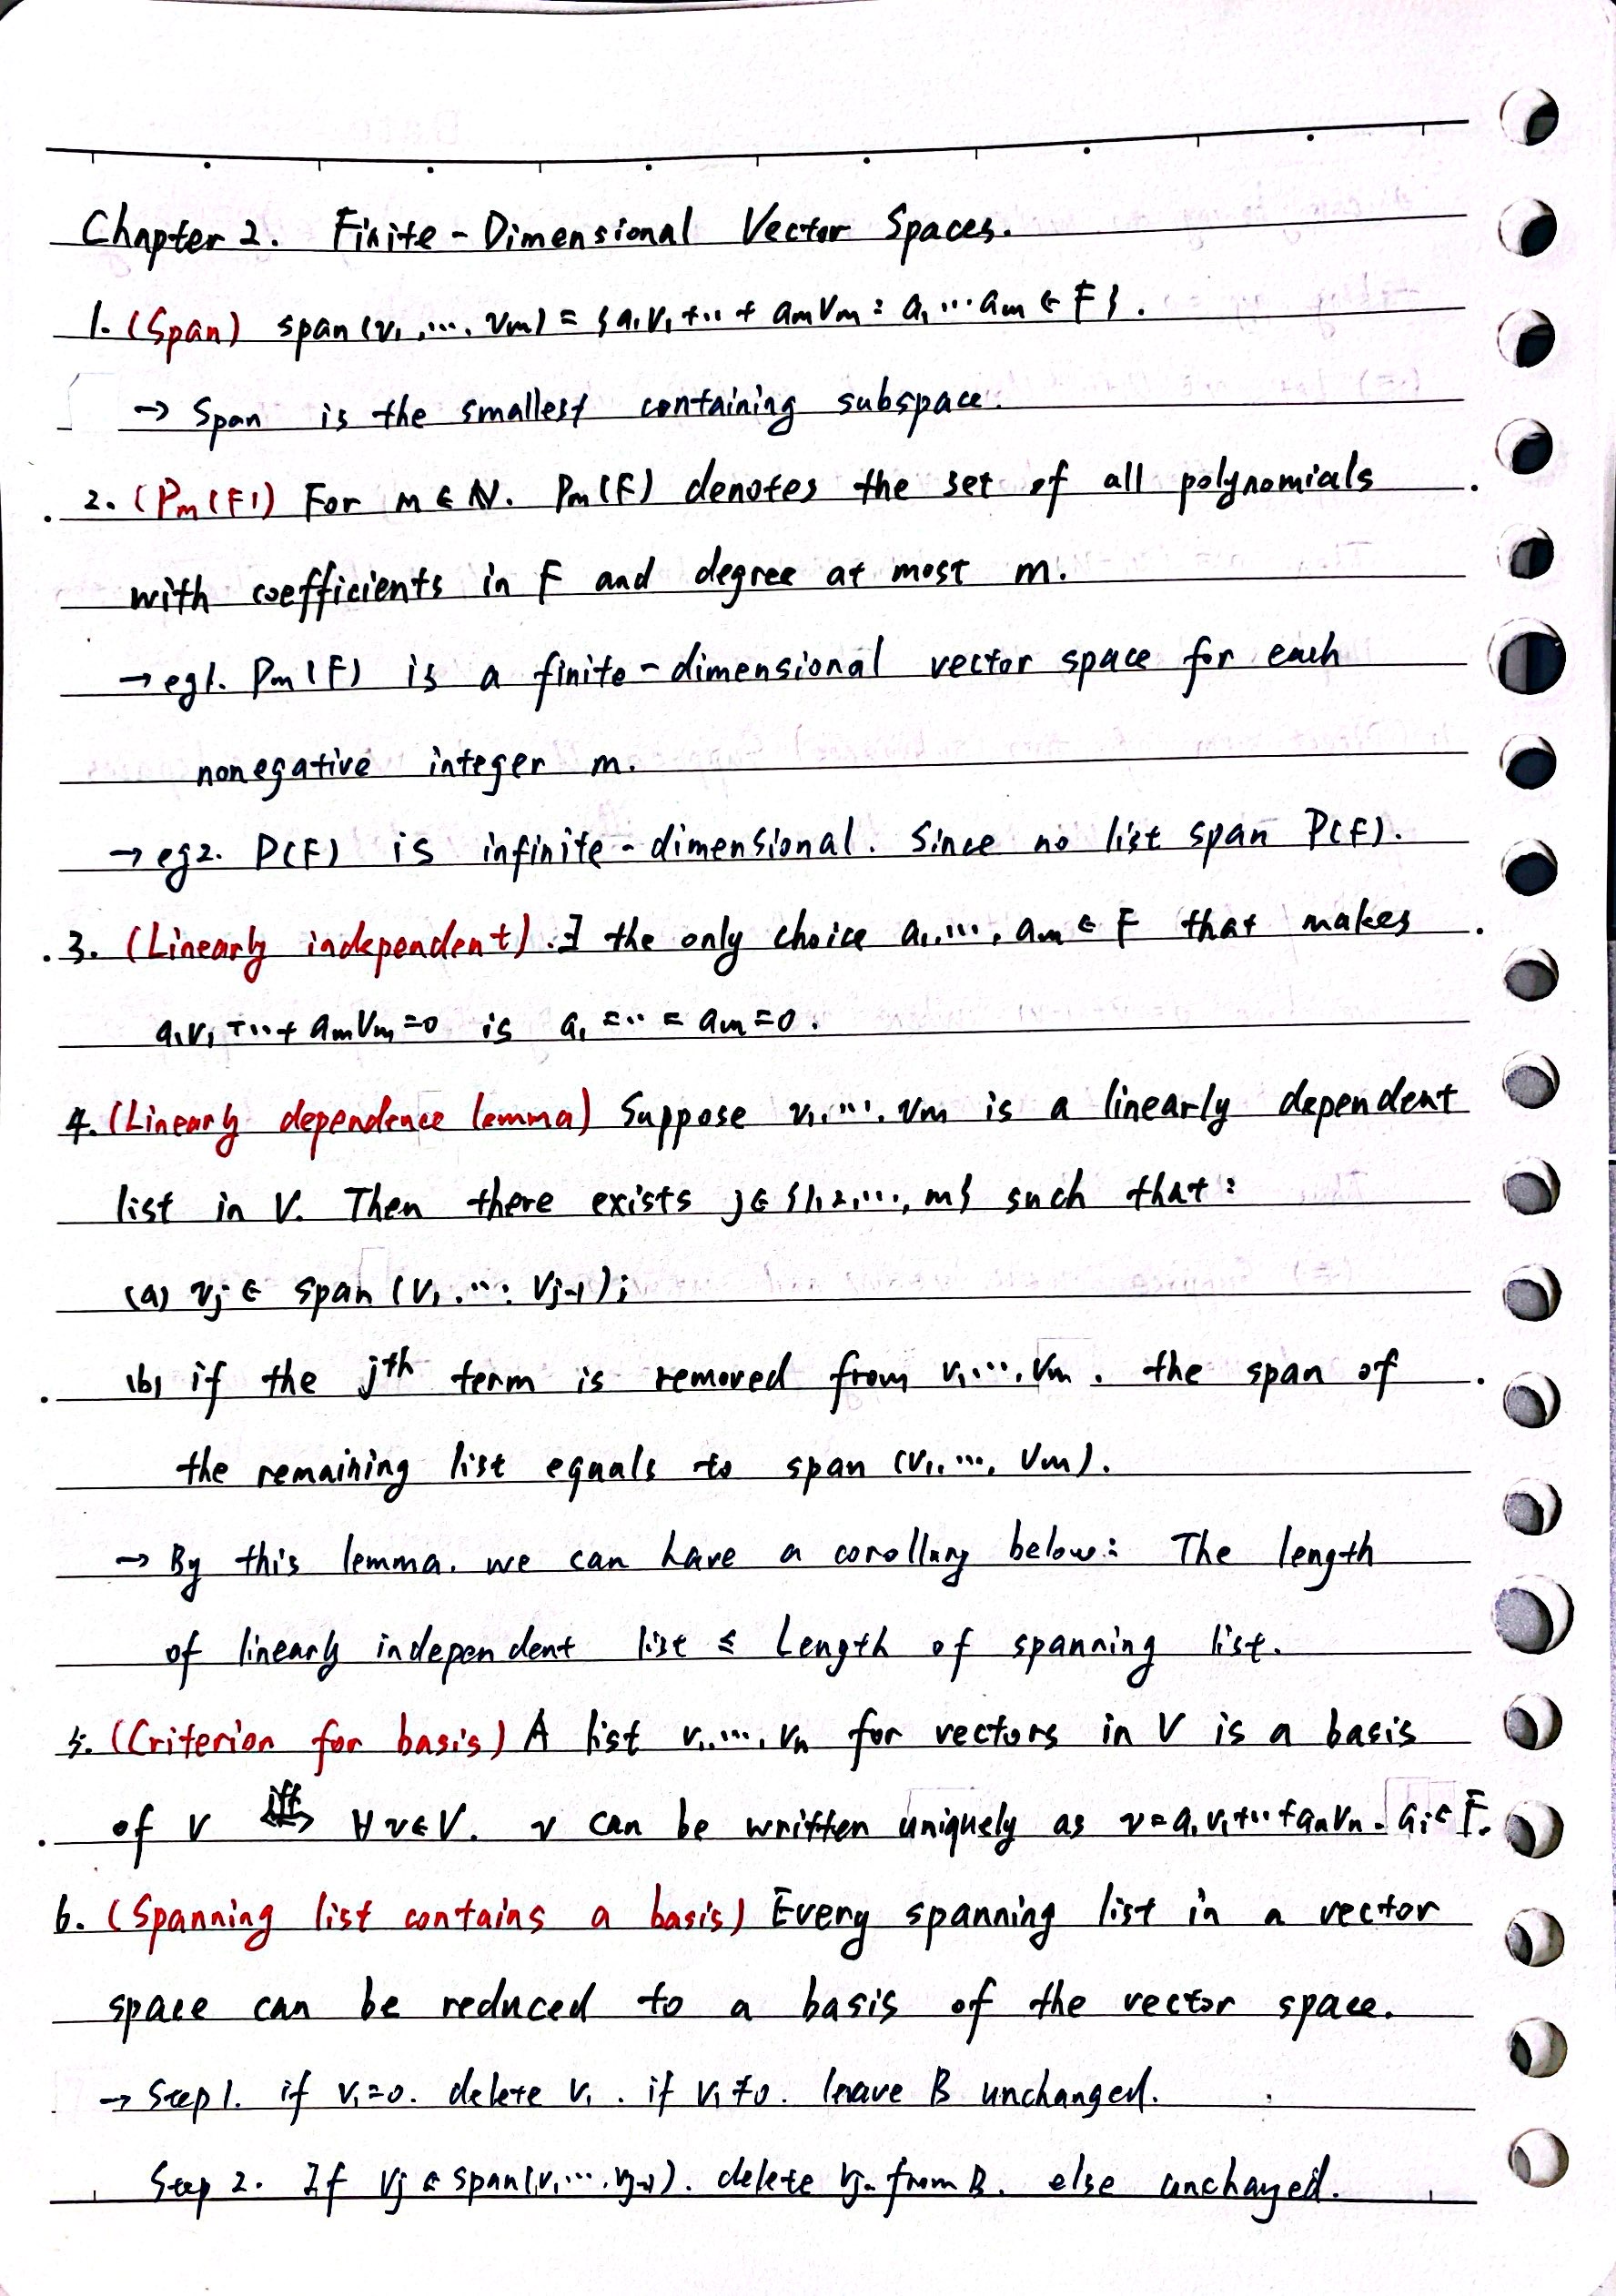 Chapter 2. Finite-Dimensional Vector Spaces.
1. (Span) span(v₁,…,vₘ) = {a₁v₁+…+aₘvₘ : a₁…aₘ ∈ F}.
→ Span is the smallest containing subspace.
2. (Pₘ(F)) For m ∈ N. Pₘ(F) denotes the set of all polynomials
with coefficients in F and degree at most m.
→ eg1. Pₘ(F) is a finite-dimensional vector space for each
nonegative integer m.
→ eg2. P(F) is infinite-dimensional. Since no list span P(F).
3. (Linearly independent). ∃ the only choice a₁,…,aₘ ∈ F that makes
a₁v₁+…+aₘvₘ=0 is a₁=…=aₘ=0.
4. (Linearly dependence lemma) Suppose v₁,…,vₘ is a linearly dependent
list in V. Then there exists j∈{1,2,…,m} such that:
(a) vⱼ ∈ span(v₁,…,vⱼ₋₁);
(b) if the jᵗʰ term is removed from v₁,…,vₘ, the span of
the remaining list equals to span (v₁,…,vₘ).
→ By this lemma, we can have a corollary below: The length
of linearly independent list ≤ Length of spanning list.
5. (Criterion for basis) A list v₁,…,vₙ for vectors in V is a basis
of V iff ∀v∈V. v can be written uniquely as v=a₁v₁+…+aₙvₙ. aᵢ∈F.
6. (Spanning list contains a basis) Every spanning list in a vector
space can be reduced to a basis of the vector space.
→ Step 1. if v₁=0. delete v₁. if v₁≠0. leave B unchanged.
Step 2. If vⱼ ∈ span(v₁,…,vⱼ₋₁). delete vⱼ from B. else unchayed.